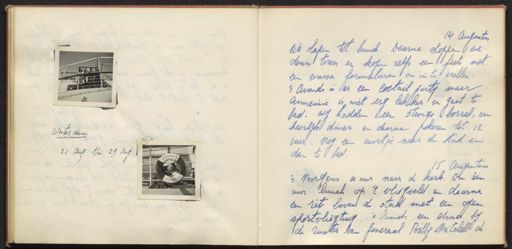 Westerdam
22 Aug t/m 29 Aug
14 Augustus
We slapen tot lunch. Daarna shoppen we
down town en kopen zelfs een fiets met
een massa formulieren om in te vullen.
's Avonds is er een cocktail party waar
Annemie niet erg lekker en gaat te
bed. Wij hadden een stevige borrel, een
heerlijk diner en daarna pokeren tot 12
uur. Nog een uurtje naar de stad en
dan te bed.
15 Augustus
's Morgens 10 uur naar de kerk. Om één
uur lunch op 't vliegveld en daarna
een rit boven de stad met een open
sportvliegtuig. 's Avonds een stand bij
de van generaal Billy Mitchell en